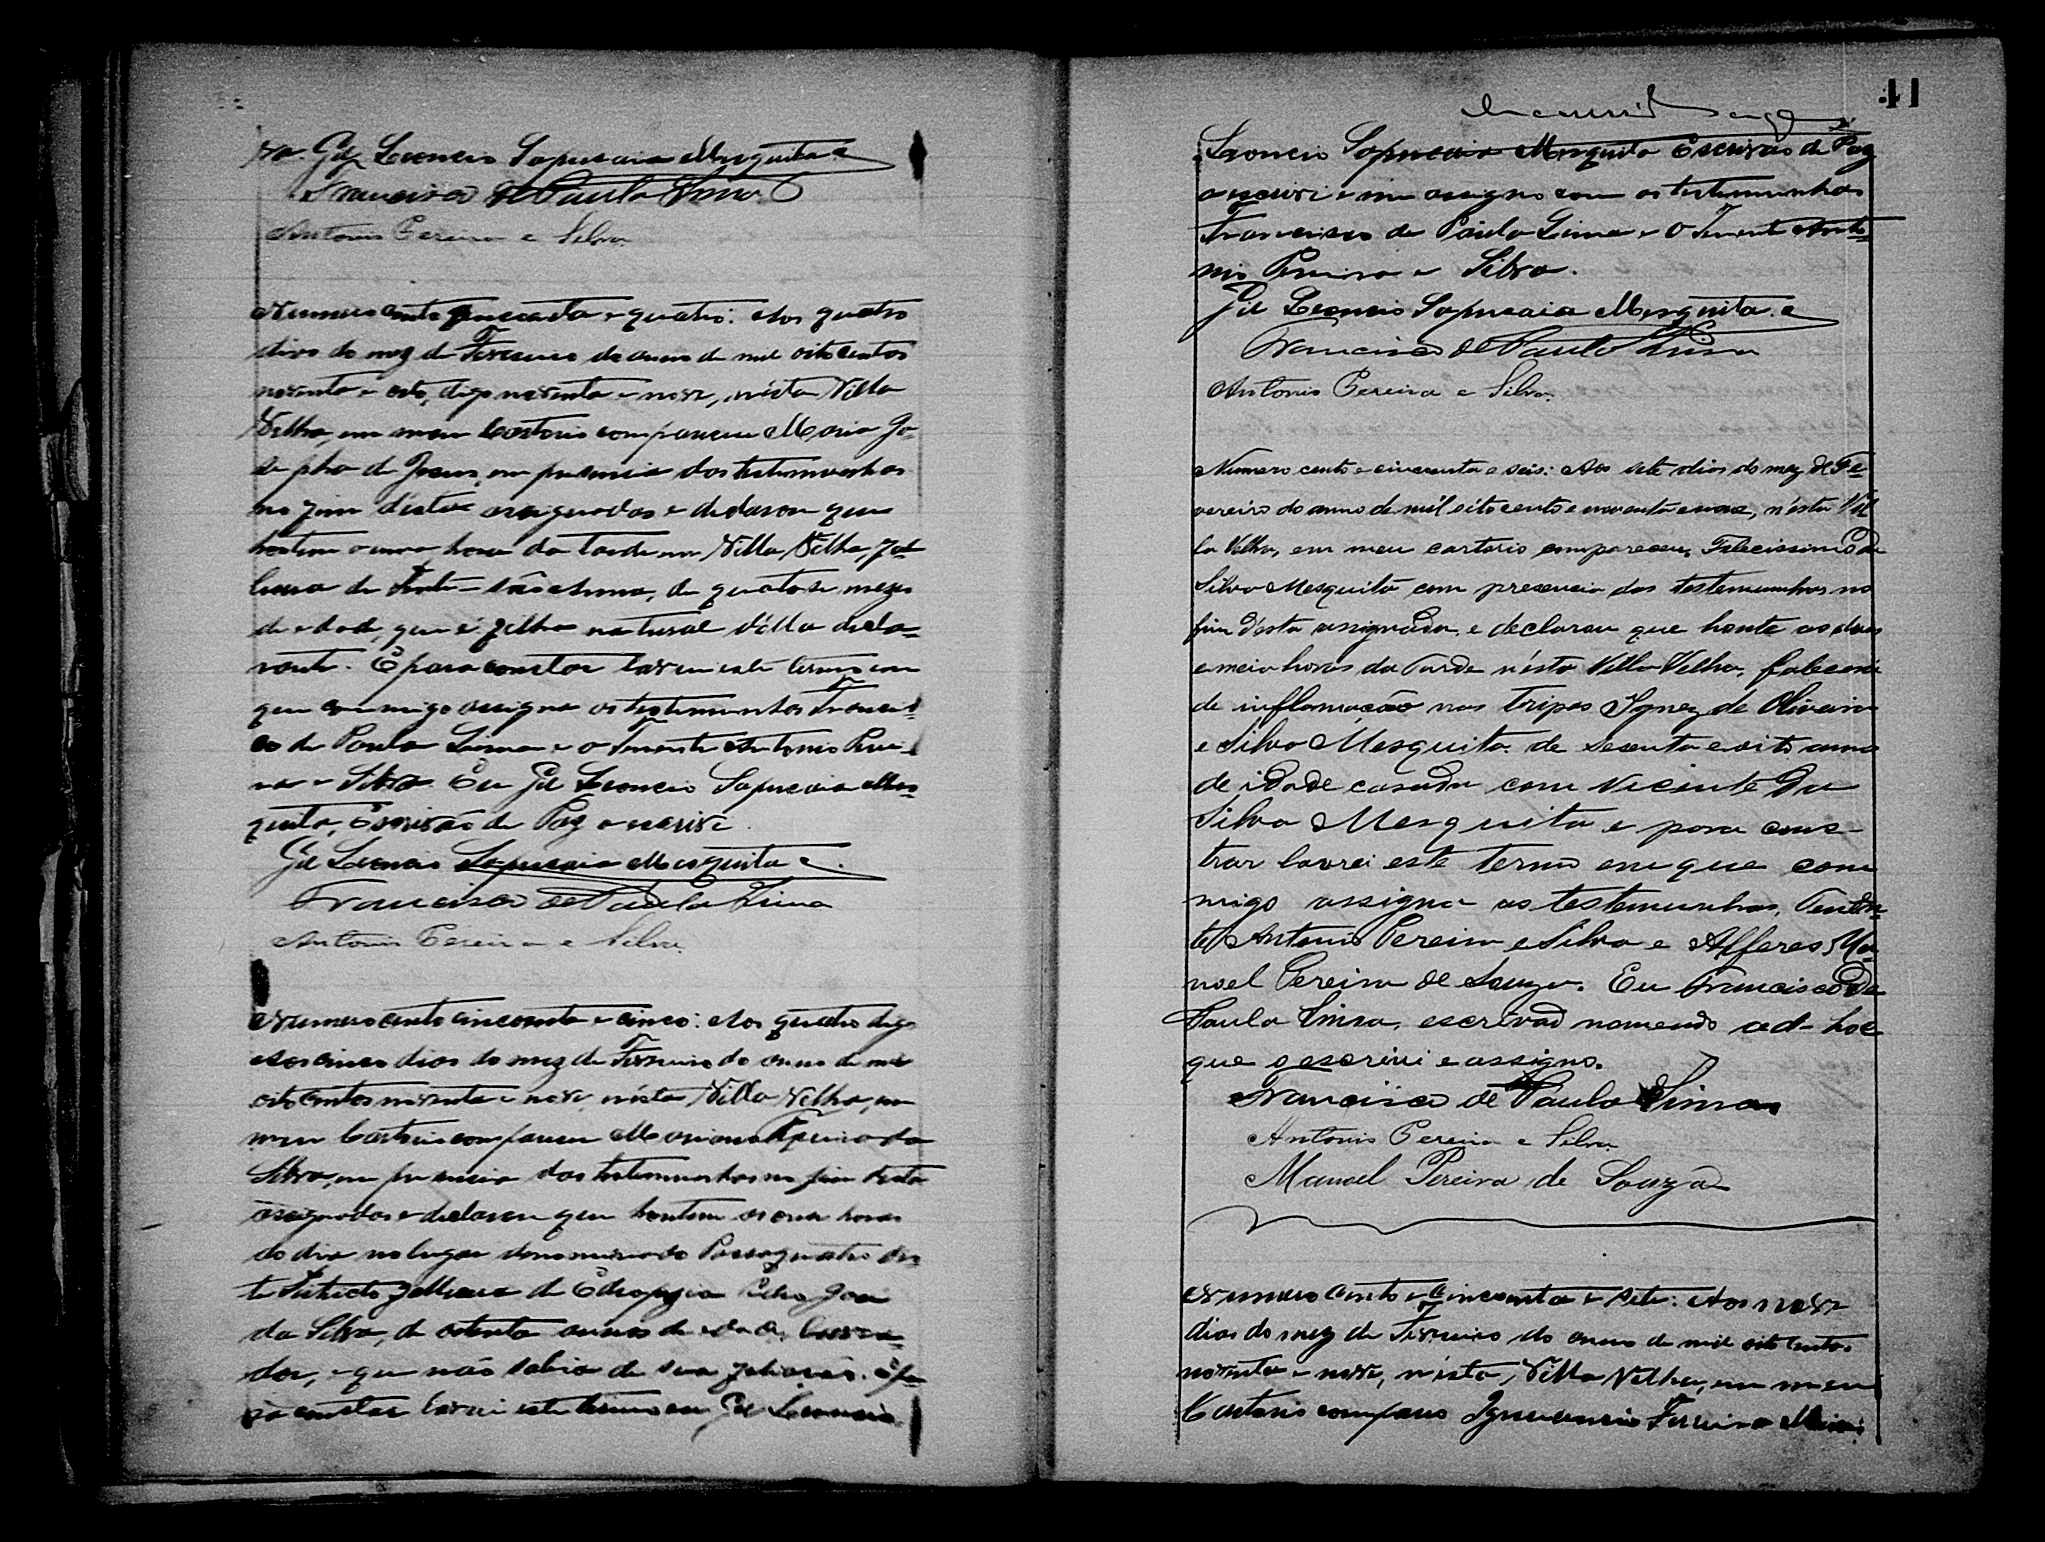 va. Gil Leoncio Sapucaia Mesquita
Francisco de Paula Lima
Antonio Pereira e Silva
Numero cento cincoenta e quatro: Aos quatro
dias do mez de Fevereiro do anno de mil oitocentos
noventa e oito, digo noventa e nove, nésta Villa
Velha, em meu Cartorio compareceu Maria Jo-
sepha de Jesus, em presencia das testemunhas
no fim désta assignadas e declarou que
hontem a uma hora da tarde na Villa Velha, fal-
leceu de
de edade, que é filha natural délla decla-
rante. E para constar lavrei este termo em
que commigo assigna as testemunhas Francis-
co de Paula Lima e o Tenente Antonio Perei-
ra e Silva. Eu Gil Leoncio Sapucaia Mes-
quita, Escrivão de Paz o escrivi.
Gil Leoncio Sapucaia Mesquita
Francisco de Paula Lima
Antonio Pereira e Silva
Numero cento cincoenta e cinco: Aos quatro digo
Aos cinco dias do mez de Fevereiro do anno de mil
oitocentos noventa e nove, nésta Villa Velha, em
meu Cartorio compareceu da
Silva, em presencia das testemunhas no fim desta
assignadas e declarou que hontem as onze horas
do dia no lugar denominado Passaquatro des-
te Districto falleceu de Pedro José
da Silva, de oitenta annos de edade, lavra-
dor, e que não sabia de sua filiação. E pa-
ra constar lavrei este termo eu Gil Leoncio
41
Leoncio Sapucaia Mesquita Escrivão de Paz
o escrivi e me assigno com as testemunhas
Francisco de Paula Lima e o Tenente Anto-
nio Pereira e Silva.
Gil Leoncio Sapucaia Mesquita
Francisco de Paula Lima
Antonio Pereira e Silva
Numero cento e cincoenta e seis: Aos sete dias do mez de Fe-
vereiro do anno de mil oitocento e noventa e nove, n'ésta Vil
la Velha, em meu cartorio compareceu, Felecissimo da
Silva Mesquita com presencia das testemunhas no
fim d'ésta assignada, e declarou que honte as duas
e meia horas da tarde n'ésta Villa Velha, faleceu
de inflamação nas tripas Ignez de Oliveira
e Silva Mesquita. de secenta e oito anno
de idade casada com Vicente da
Silva Mesquita e para cons-
trar lavrei este termo em que com
migo assigna as testemunhas, Tenen-
te Antonio Pereira e Silva e Alferes Ma-
noel Pereira de Souza. Eu Francisco de
Paula Lima, escrivão nomeado ad-hoc
que o escrivi e assigno.
Francisco de Paula Lima
Antonio Pereira e Silva
Manoel Pereira de Souza
Numero cento e cincoenta e sete: Aos nove
dias do mez de Fevereiro do anno de mil oitocentos
noventa e nove, n'ésta Villa Velha, em meu
Cartorio compareceu Ferreira